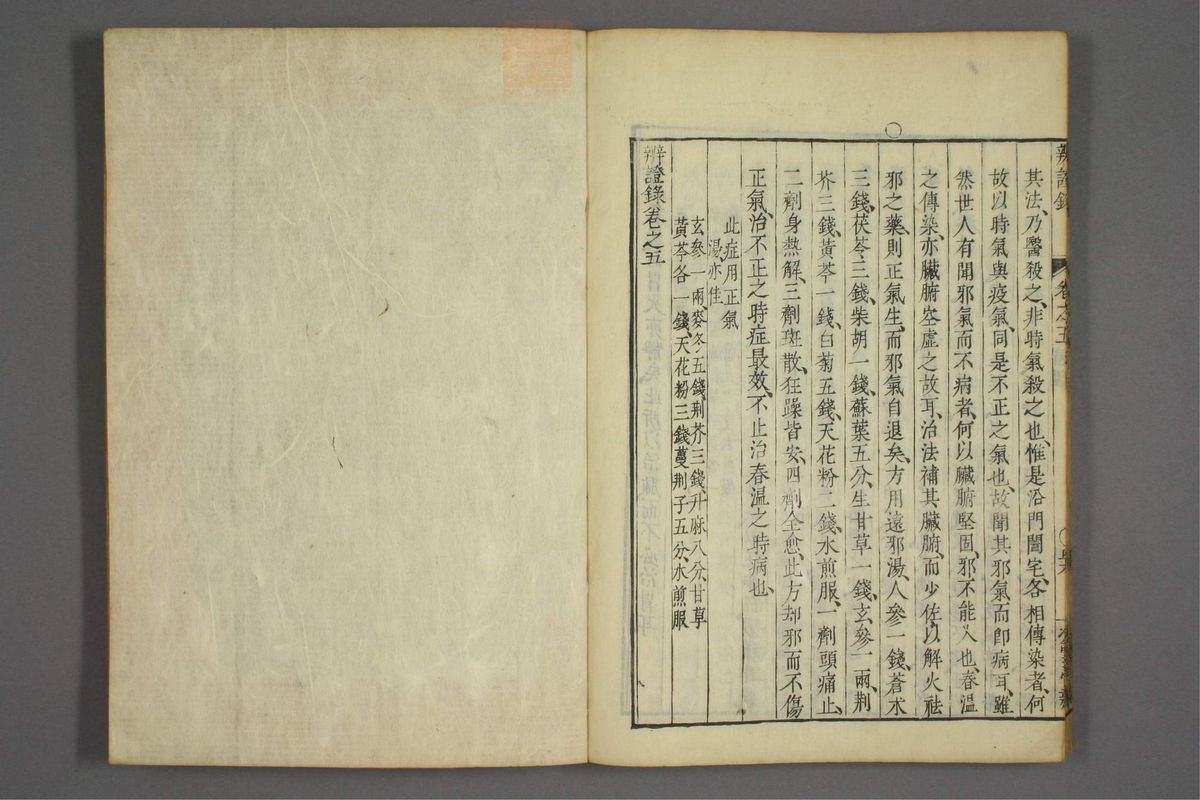 辨證錄 卷之五
其法、乃醫殺之、非時氣殺之也、惟是沿門闔宅、各相傳染者、何
故以時氣與疫氣、同是不正之氣也、故聞其邪氣而卽病耳、雖
然世人有聞邪氣而不病者、何以臟腑堅固、邪不能入也、春溫
之傳染、亦臟腑空虛之故耳、治法補其臟腑、而少佐以解火祛
邪之藥、則正氣生、而邪氣自退矣、方用遠邪湯、人參一錢、蒼朮
三錢、茯苓三錢、柴胡一錢、蘇葉五分、生甘草一錢、玄參一兩、荆
芥三錢、黃芩一錢、白菊五錢、天花粉二錢、水煎服、一劑頭痛止、
二劑身熱解、三劑斑散、狂躁皆安、四劑全愈、此方却邪而不傷
正氣、治不正之時症最效、不止治春溫之時病也、
此症用正氣
湯亦佳
玄參一兩、麥冬五錢、荆芥三錢、升麻八分、甘草
黃芩各一錢、天花粉三錢、蔓荆子五分、水煎服
辨證錄卷之五